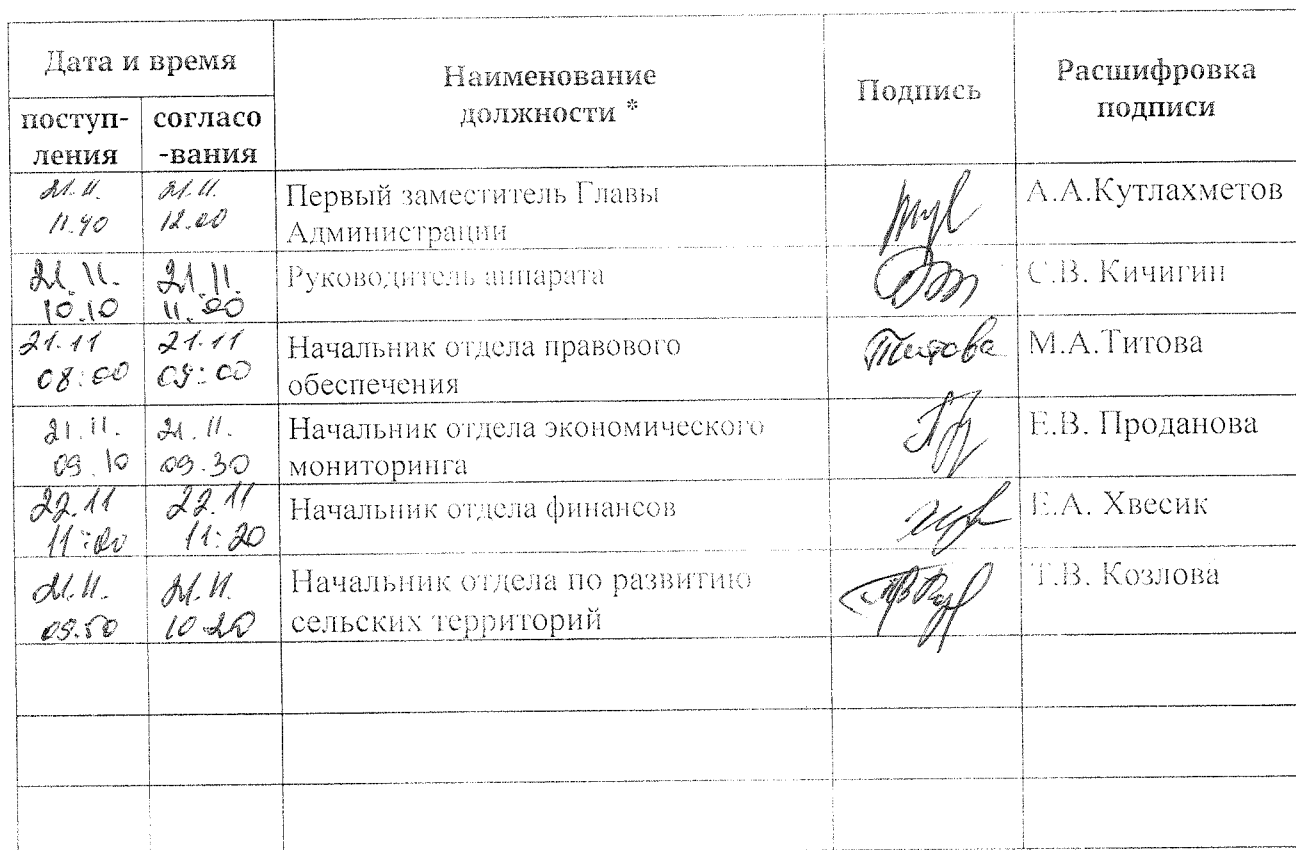 Дата и время
Наименование
должности *
Подпись
Расшифровка
подписи
поступ-
ления
согласо
-вания
21.11.
11.40
21.11.
12.00
Первый заместитель Главы
Администрации
А.А.Кутлахметов
21.11.
10.10
21.11.
11.00
Руководитель аппарата
С.В. Кичигин
21.11
08:00
21.11
09:00
Начальник отдела правового
обеспечения
Титова
М.А.Титова
21.11.
09.10
21.11.
09.30
Начальник отдела экономического
мониторинга
Е.В. Проданова
22.11
11:00
22.11
11:20
Начальник отдела финансов
Е.А. Хвесик
21.11.
09.50
21.11.
10.20
Начальник отдела по развитию
сельских территорий
Т.В. Козлова